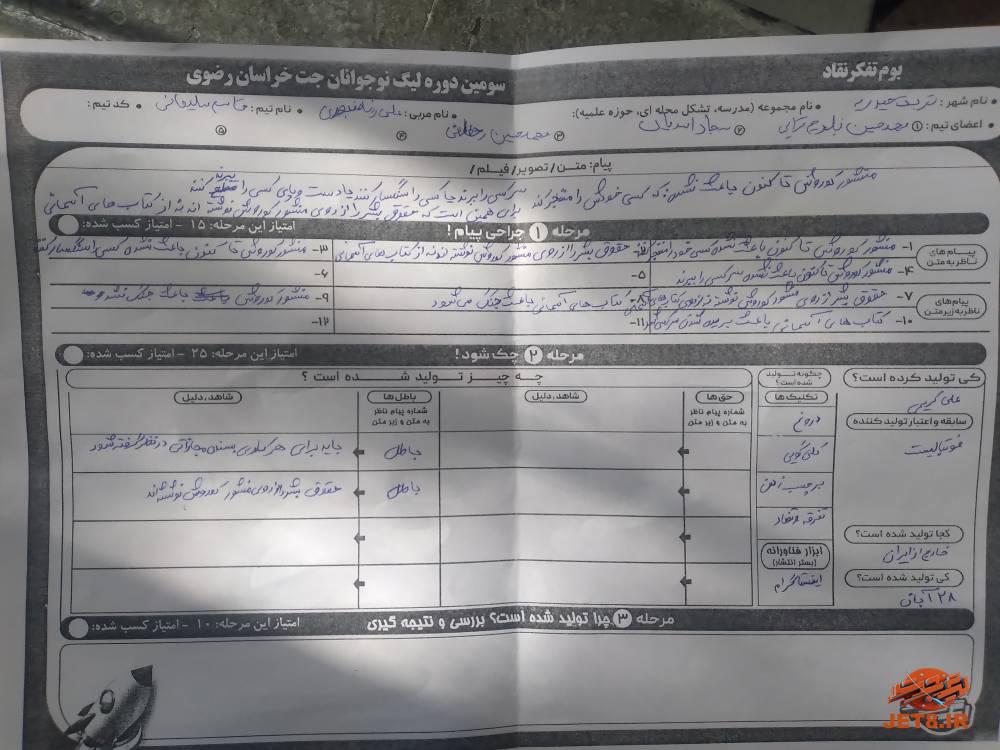 بوم تفکر نقاد
سومین دوره لیگ نوجوانان جت خراسان رضوی
نام شهر:
نام مجموعه (مدرسه، تشکل محله ای، حوزه علمیه):
نام مربی: علی رضا
نام تیم: قاسم سلیمانی
کد تیم:
اعضای تیم: ۱ محمد حسین
۲ سجاد
۳ محمد حسین
۴
۵
پیام: متن/ تصویر/ فیلم/
منشور کوروش تا کنون باعث نشده که کسی خودش را منفجر کند سر کسی را ببرند جا کسی را سنگسار کنند یا دست و پای کسی را قطع کنند
برای همین است که حقوق بشر را از روی منشور کوروش نوشته اند نه از کتاب های آسمانی
مرحله ۱ جراحی پیام!
امتیاز این مرحله: ۱۵ - امتیاز کسب شده:
پیام های ناظر به متن
۱- منشور کوروش تا کنون باعث نشده کسی خود را منفجر کند
۲- حقوق بشر را از روی منشور کوروش نوشته اند نه از کتاب های آسمانی
۳- منشور کوروش تا کنون باعث نشده کسی را سنگسار کنند
۴- منشور کوروش تا کنون باعث نشده سر کسی را ببرند
۵-
۶-
پیام های ناظر به زیر متن
۷- حقوق بشر از روی منشور کوروش نوشته نه از روی کتاب های آسمانی
۸- کتاب های آسمانی باعث جنگ می شود
۹- منشور کوروش باعث جنگ نشده
۱۰- کتاب های آسمانی باعث بریدن
۱۱-
۱۲-
مرحله ۲ چک شود!
امتیاز این مرحله: ۲۵ - امتیاز کسب شده:
کی تولید کرده است؟
علی کریمی
سابقه و اعتبار تولید کننده
فوتبالیست
کجا تولید شده است؟
خارج از ایران
کی تولید شده است؟
۲۸ آبان
چگونه تولید شده است؟
تکنیک ها
دروغ
کلی گویی
برچسب زدن
تفرقه و تضاد
ابزار فناورانه
(بستر انتشار)
اینستاگرام
چه چیز تولید شده است؟
حق ها
شماره پیام ناظر به متن و زیر متن
شاهد، دلیل
باطل ها
شماره پیام ناظر به متن و زیر متن
شاهد، دلیل
باطل
باید برای هر کاری مجازاتی در نظر گرفته شود
باطل
حقوق بشر را از روی منشور کوروش نوشته اند
مرحله ۳ چرا تولید شده است؟ بررسی و نتیجه گیری
امتیاز این مرحله: ۱۰ - امتیاز کسب شده:
JET8.IR